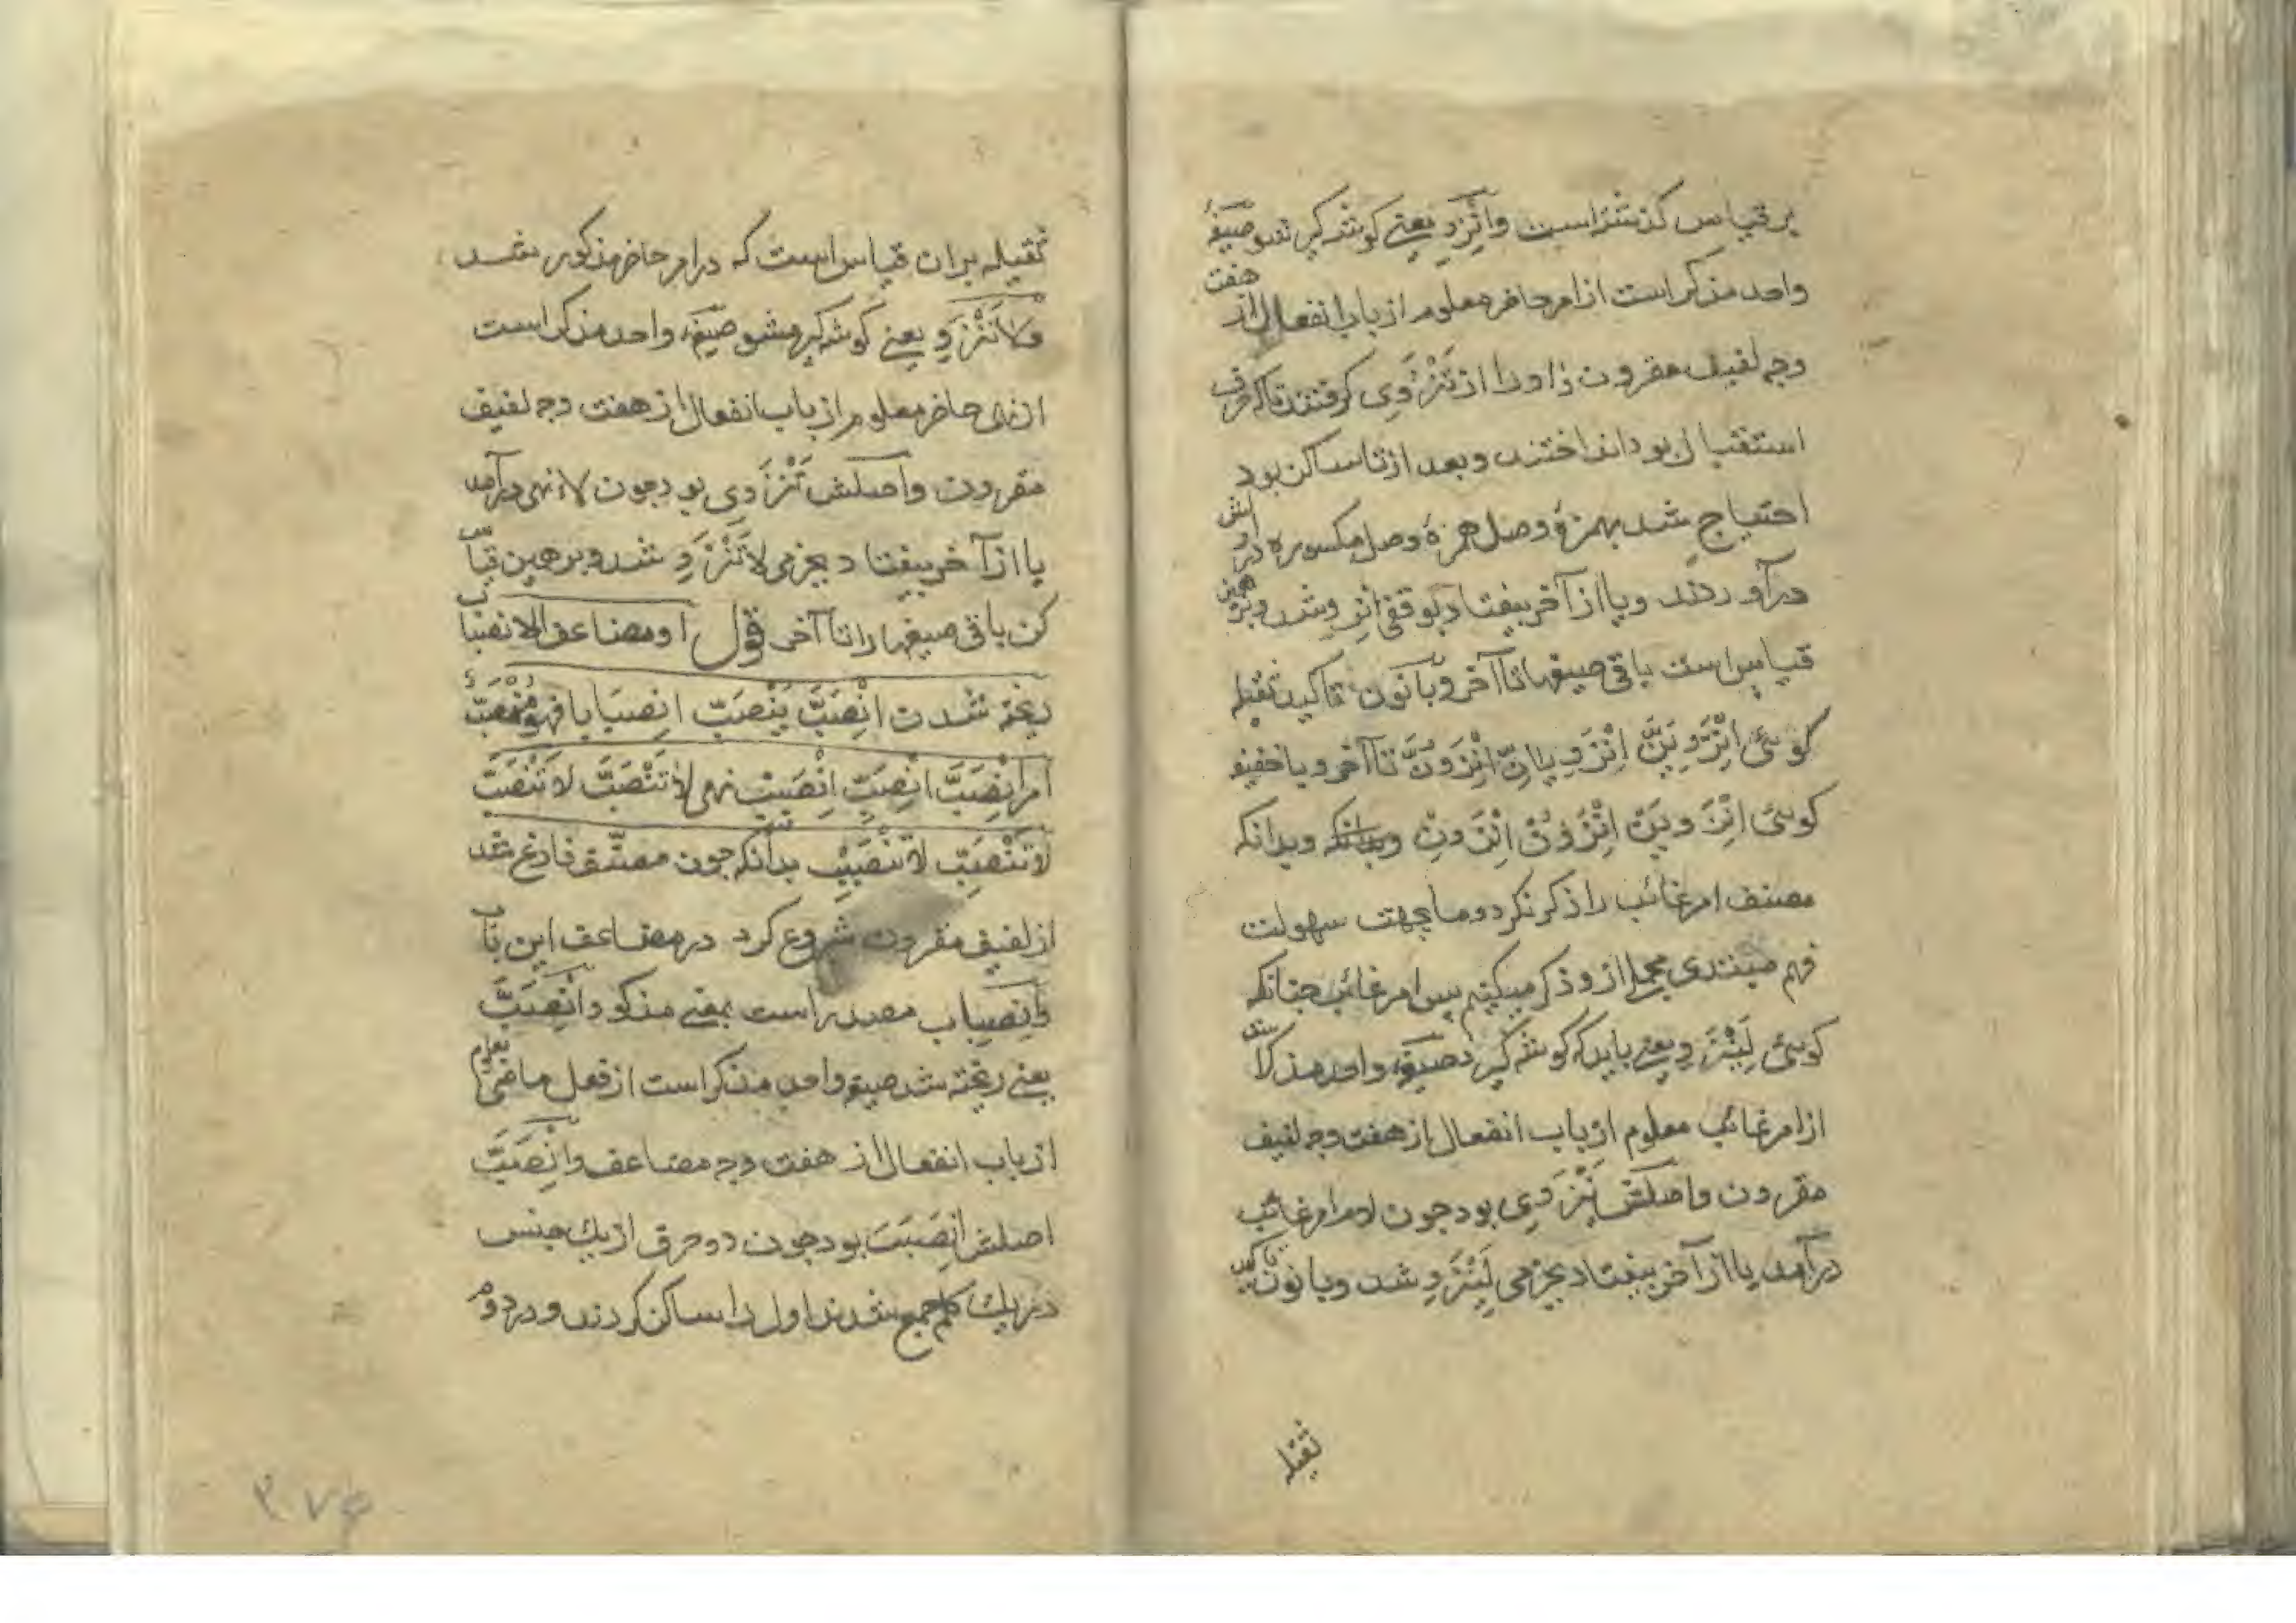 بر قیاس کذشته است وانْزَوِ یعنی کوشه کیر شو صیغهٔ
واحد مذکر است از امر حاضر معلوم از باب انفعال از هفت
وجه لفیف مقرون واورا از تَنْزَوِی کرفتند تا که حرف
استقبال بود انداختند وبعد از تا ساکن بود
احتیاج شد بهمزهٔ وصل همزهٔ وصل مکسوره در اولش
درآوردند ویا از آخر بیفتاد بوقفی انْزَوِ شد وبر همین
قیاس است باقی صیغها تا آخر وبا نون تاکید ثقیله
کوئی انْزَوِیَنَّ اِنْزَوِیانِّ اِنْزَوُنَّ تا آخر وبا خفیفه
کوئی انْزَوِیَنْ اِنْزَوُنْ اِنْزَوِنْ وبدانکه وبدانکه
مصنف امر غائب را ذکر نکرد وما بجهت سهولت
فهم مبتدی مجملا از و ذکر میکنیم پس امر غائب چنانکه
کوئی لِیَنْزَوِ یعنی باید که کوشه کیرد صیغهٔ واحد مذکر است
از امر غائب معلوم از باب انفعال از هفت وجه لفیف
مقرون واصلش یَنْزَوِی بود چون لام امر غائب
درآمد یا از آخر بیفتاد بجزمی لِیَنْزَوِ شد وبا نون تاکید
ثقیله
ثقیله بران قیاس است که در امر حاضر مذکور شد
ولاتَنْزَوِ یعنی کوشه کیر مشو صیغهٔ واحد مذکر است
از نهی حاضر معلوم از باب انفعال از هفت وجه لفیف
مقرون واصلش تَنْزَوِی بود چون لاء نهی درآمد
یا از آخر بیفتاد بجزمی لاتَنْزَوِ شد وبر همین قیاس
کن باقی صیغها را تا آخر قوله ومضاعف الانصباب
ریخته شدن انْصَبَّ یَنْصَبُّ انصبابا فهو مُنْصَبٌّ
امر انْصَبَّ انْصَبِّ اِنْصَبِبْ نهی لاتَنْصَبَّ لاتَنْصَبِّ
لاتَنْصَبِبْ بدانکه چون مصنف فارغ شد
از لفیف مقرون شروع کرد در مضاعف این باب
وانصباب مصدر است بمعنی مذکور وانْصَبَّ
یعنی ریخته شد صیغهٔ واحد مذکر است از فعل ماضی معلوم
از باب انفعال از هفت وجه مضاعف وانْصَبَّ
اصلش انْصَبَبَ بود چون دو حرف از یك جنس
در یك کلمه جمع شدند اول را ساکن کردند و در دوم
۲۷۵